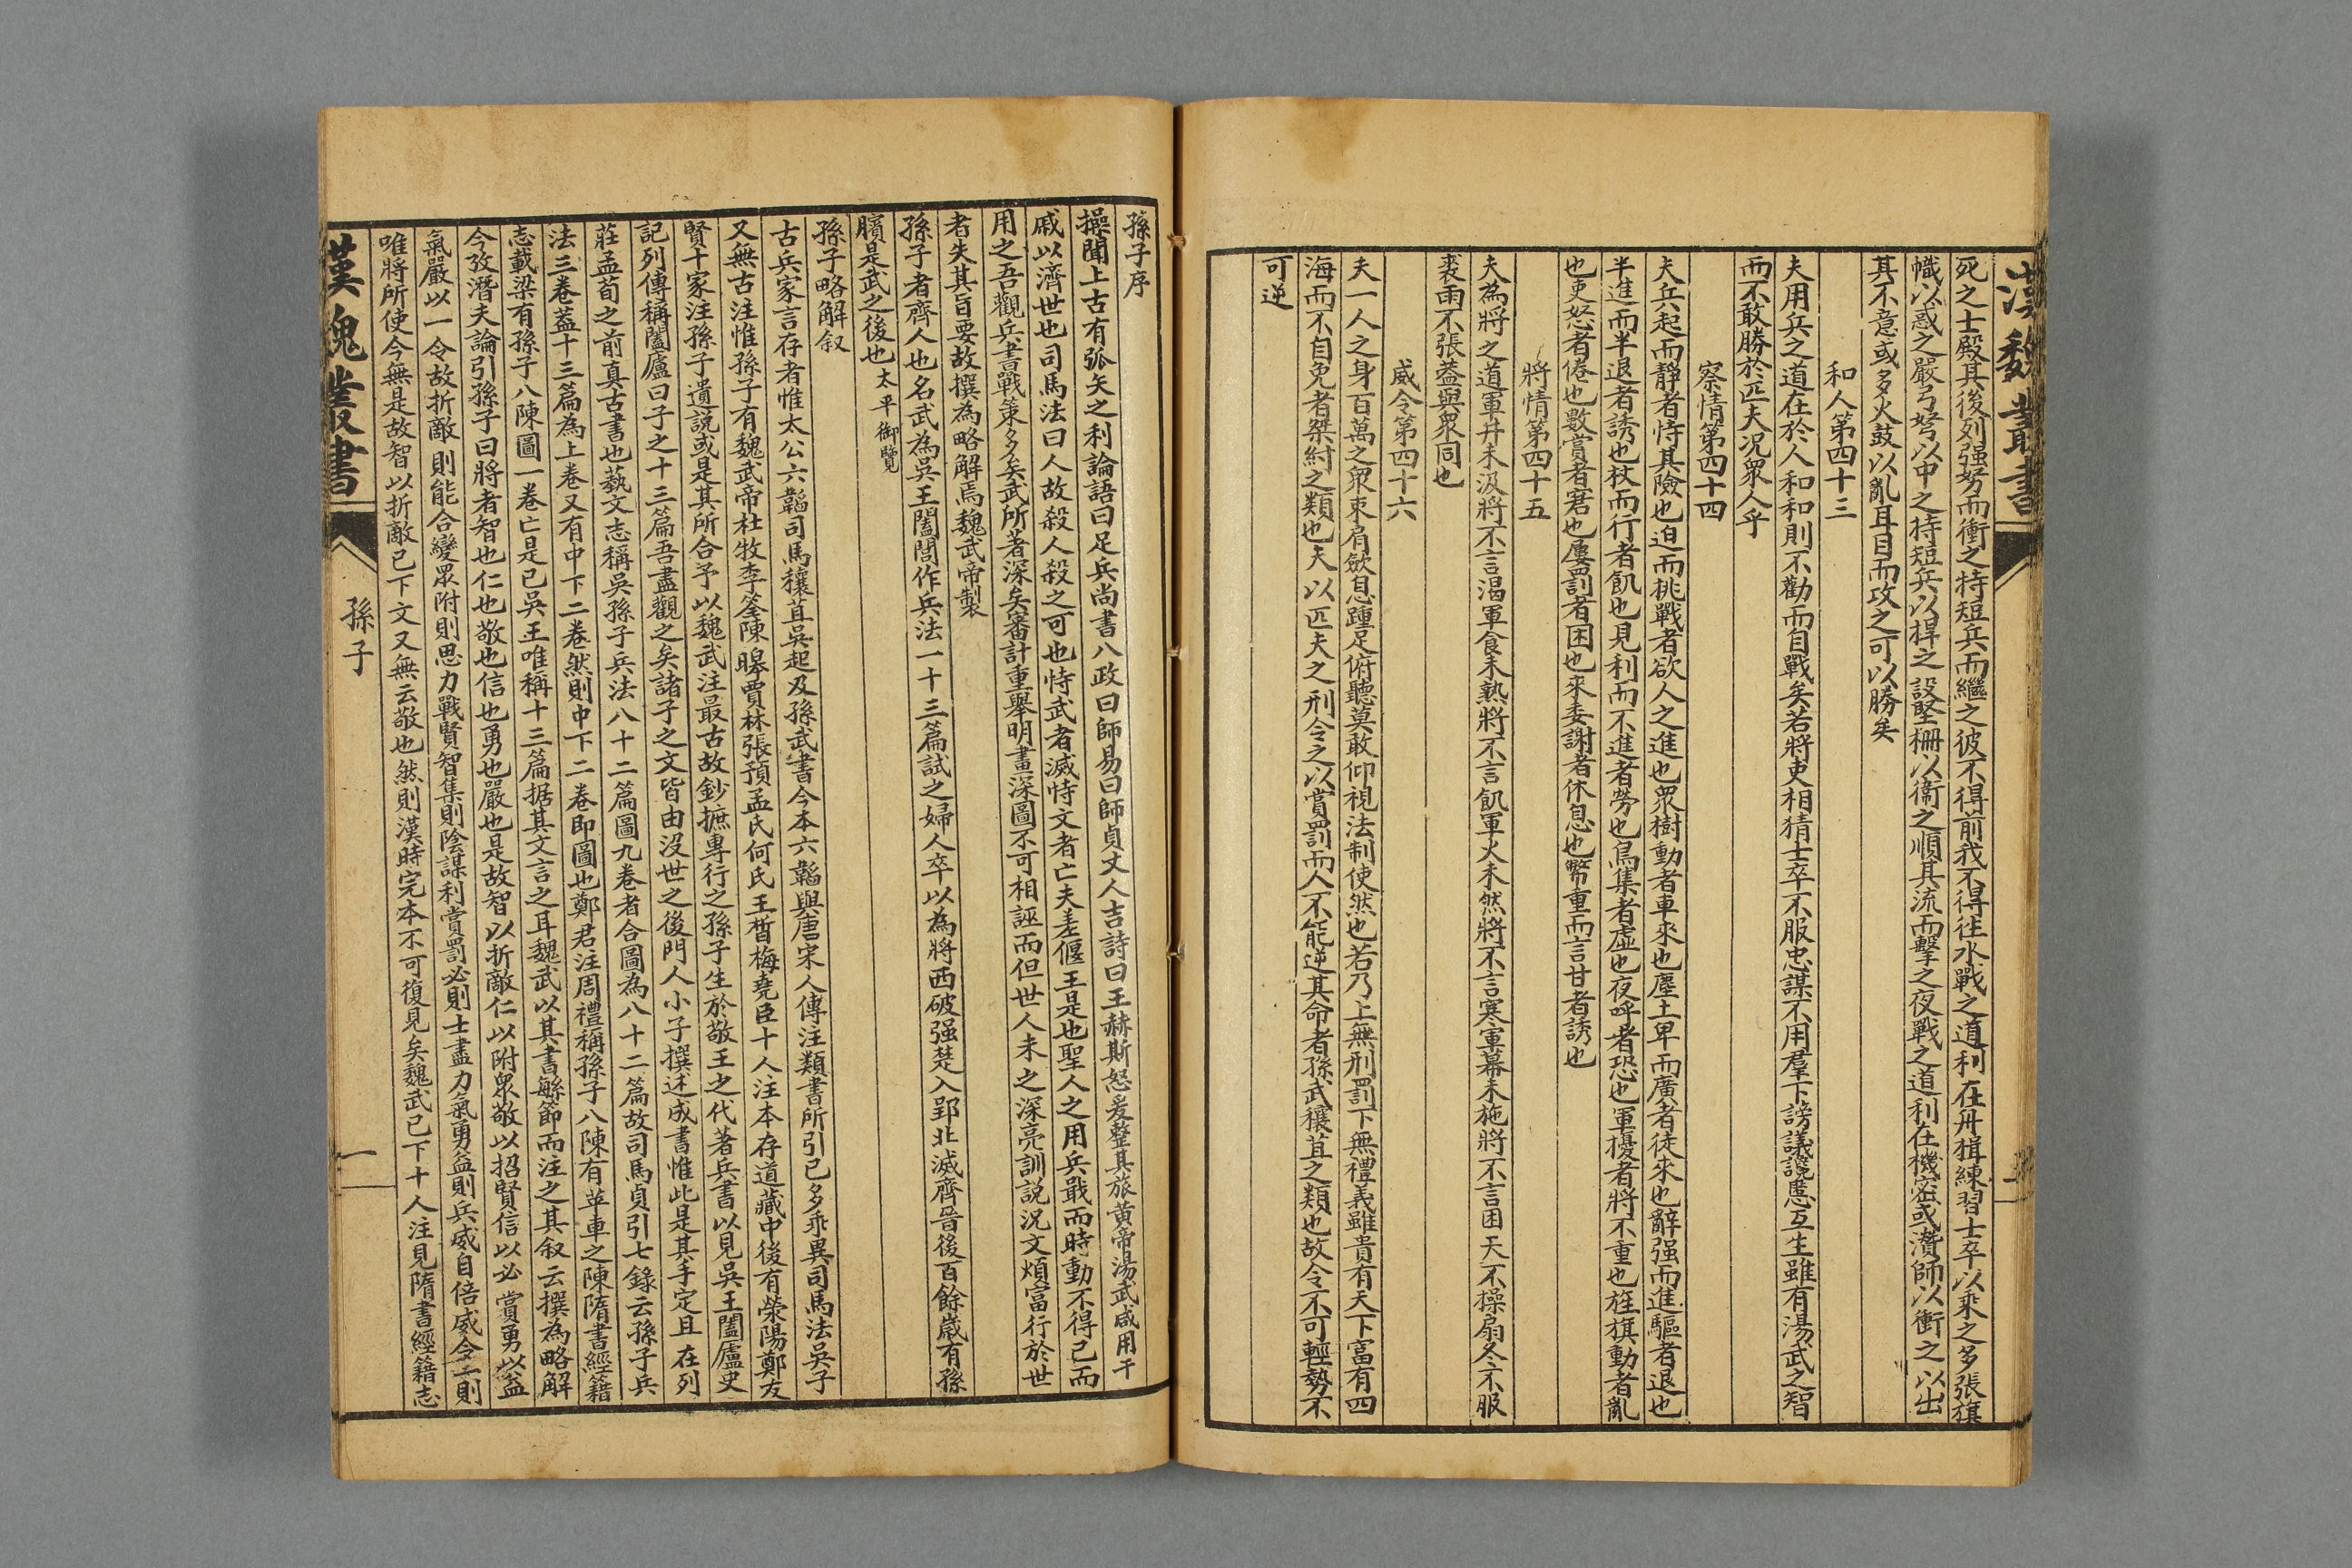 漢魏叢書
死之士殿其後列强弩而衝之持短兵而繼之彼不得前我不得往水戰之道利在舟楫練習士卒以乘之多張旗
幟以惑之嚴弓弩以中之持短兵以捍之設堅柵以衞之順其流而擊之夜戰之道利在機密或濳師以衝之以出
其不意或多火鼓以亂耳目而攻之可以勝矣
和人第四十三
夫用兵之道在於人和和則不勸而自戰矣若將吏相猜士卒不服忠謀不用羣下謗議讒慝互生雖有湯武之智
而不敢勝於匹夫况衆人乎
察情第四十四
夫兵起而靜者恃其險也迫而挑戰者欲人之進也衆樹動者車來也塵土卑而廣者徒來也辭强而進驅者退也
半進而半退者誘也杖而行者飢也見利而不進者勞也鳥集者虛也夜呼者恐也軍擾者將不重也旌旗動者亂
也吏怒者倦也數賞者窘也屢罰者困也來委謝者休息也幣重而言甘者誘也
將情第四十五
夫為將之道軍井未汲將不言渴軍食未熟將不言飢軍火未然將不言寒軍幕未施將不言困天不操扇冬不服
裘雨不張蓋與衆同也
威令第四十六
夫一人之身百萬之衆束肩斂息踵足俯聽莫敢仰視法制使然也若乃上無刑罰下無禮義雖貴有天下富有四
海而不自免者桀紂之類也夫以匹夫之刑令之以賞罰而人不能逆其命者孫武穰苴之類也故令不可輕勢不
可逆
孫子序
操聞上古有弧矢之利論語曰足兵尚書八政曰師易曰師貞丈人吉詩曰王赫斯怒爰整其旅黄帝湯武咸用干
戚以濟世也司馬法曰人故殺人殺之可也恃武者滅恃文者亡夫差偃王是也聖人之用兵戢而時動不得已而
用之吾觀兵書戰策多矣武所著深矣審計重舉明畫深圖不可相誣而但世人未之深亮訓説況文煩富行於世
者失其旨要故撰為略解焉魏武帝製
孫子者齊人也名武為吳王闔閭作兵法一十三篇試之婦人卒以為將西破强楚入郢北滅齊晉後百餘歲有孫
臏是武之後也太平御覽
孫子略解叙
古兵家言存者惟太公六韜司馬穰苴吳起及孫武書今本六韜與唐宋人傳注類書所引已多乖異司馬法吳子
又無古注惟孫子有魏武帝杜牧李筌陳皥賈林張預孟氏何氏王晳梅堯臣十人注本存道藏中後有滎陽鄭友
賢十家注孫子遺説或是其所合予以魏武注最古故鈔摭專行之孫子生於敬王之代著兵書以見吳王闔廬史
記列傳稱闔廬曰子之十三篇吾盡觀之矣諸子之文皆由沒世之後門人小子撰述成書惟此是其手定且在列
莊孟荀之前真古書也藝文志稱吳孫子兵法八十二篇圖九卷者合圖為八十二篇故司馬貞引七錄云孫子兵
法三卷蓋十三篇為上卷又有中下二卷然則中下二卷即圖也鄭君注周禮稱孫子八陳有苹車之陳隋書經籍
志載梁有孫子八陳圖一卷亡是已吳王唯稱十三篇据其文言之耳魏武以其書緐節而注之其叙云撰為略解
今攷潛夫論引孫子曰將者智也仁也敬也信也勇也嚴也是故智以折敵仁以附衆敬以招賢信以必賞勇以益
氣嚴以一令故折敵則能合變眾附則思力戰賢智集則陰謀利賞罰必則士盡力氣勇益則兵威自倍威令一則
唯將所使今無是故智以折敵已下文又無云敬也然則漢時完本不可復見矣魏武已下十人注見隋書經籍志
漢魏叢書
孫子
一